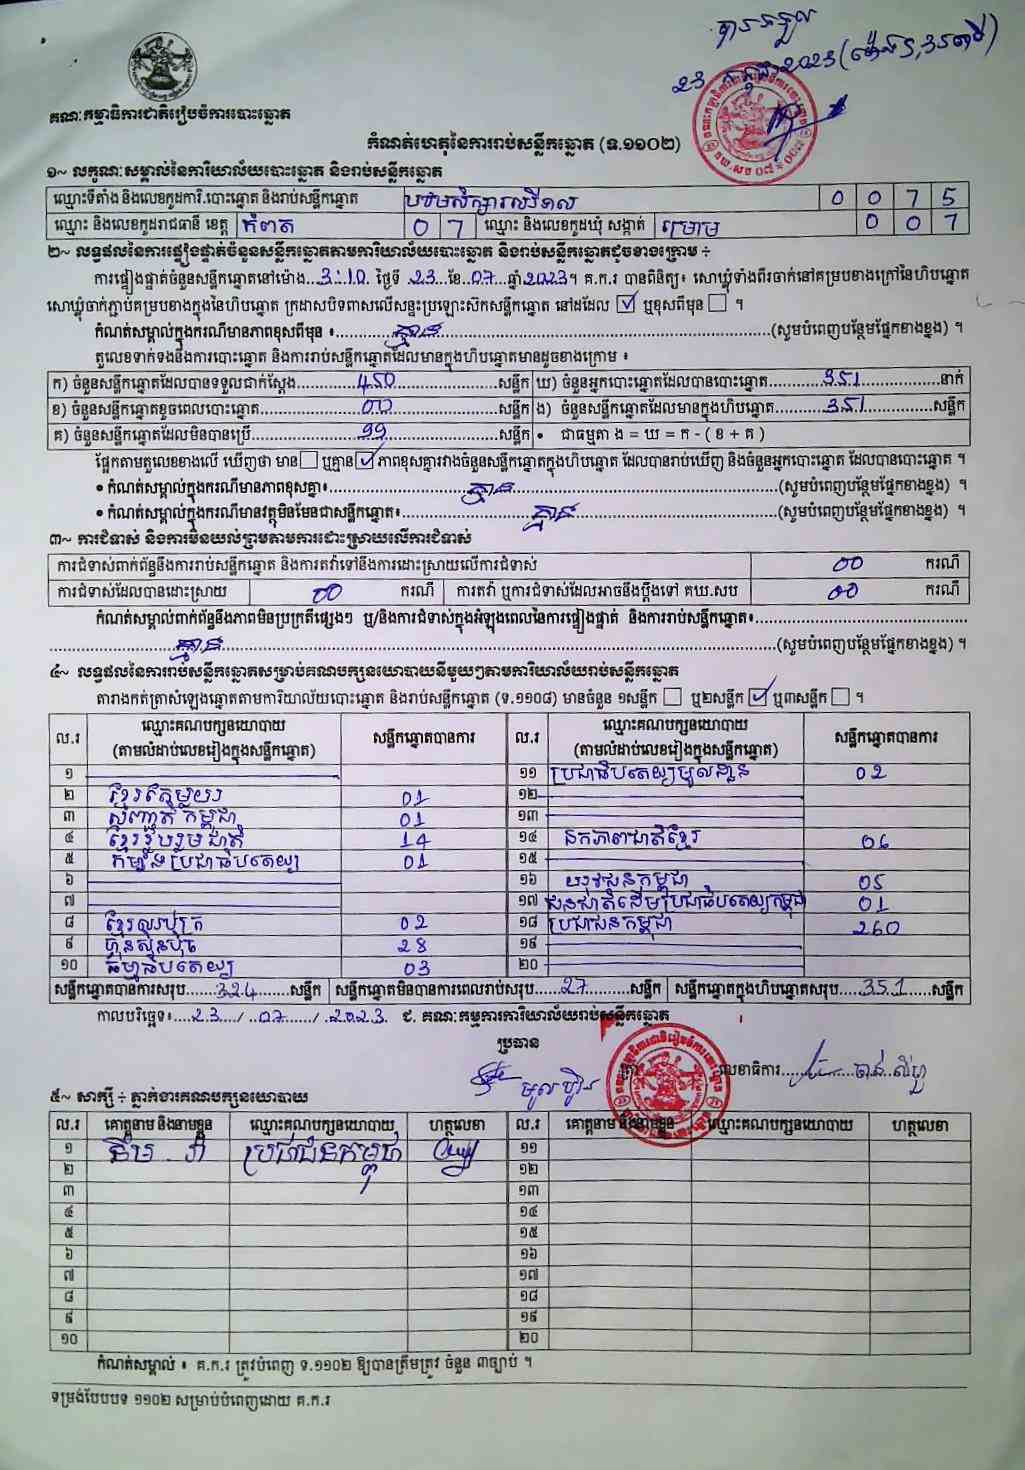 បានទទួល
23 កក្កដា 2023 (ម៉ោង
គណៈកម្មាធិការជាតិរៀបចំការបោះឆ្នោត
កំណត់ហេតុនៃការរាប់សន្លឹកឆ្នោត (ទ.១១០២)
១~ លក្ខណៈសម្គាល់នៃការិយាល័យបោះឆ្នោត និងរាប់សន្លឹកឆ្នោត
ឈ្មោះទីតាំង និងលេខកូដការិ.បោះឆ្នោត និងរាប់សន្លឹកឆ្នោត 0 0 7 5
ឈ្មោះ និងលេខកូដរាជធានី ខេត្ត កំពត 0 7 ឈ្មោះ និងលេខកូដឃុំ សង្កាត់ 0 0 7
២~ លទ្ធផលនៃការផ្ទៀងផ្ទាត់ចំនួនសន្លឹកឆ្នោតតាមការិយាល័យបោះឆ្នោត និងរាប់សន្លឹកឆ្នោតដូចខាងក្រោម ÷
ការផ្ទៀងផ្ទាត់ចំនួនសន្លឹកឆ្នោតនៅម៉ោង...3:10. ថ្ងៃទី .23.ខែ.07.ឆ្នាំ2023។ គ.ក.រ បានពិនិត្យ៖ សោឃ្លុំទាំងពីរចាក់នៅគម្របខាងក្រៅនៃហិបឆ្នោត
សោឃ្លុំចាក់ភ្ជាប់គម្របខាងក្នុងនៃហិបឆ្នោត ក្រដាសបិទពាសលើសន្ទះប្រឡោះស៊កសន្លឹកឆ្នោត នៅដដែល ☑ ឬខុសពីមុន ☐ ។
កំណត់សម្គាល់ក្នុងករណីមានភាពខុសពីមុន ៖ គ្មាន (សូមបំពេញបន្ថែមផ្នែកខាងខ្នង) ។
តួលេខទាក់ទងនឹងការបោះឆ្នោត និងការរាប់សន្លឹកឆ្នោតដែលមានក្នុងហិបឆ្នោតមានដូចខាងក្រោម ៖
ក) ចំនួនសន្លឹកឆ្នោតដែលបានទទួលជាក់ស្តែង 450 សន្លឹក ឃ) ចំនួនអ្នកបោះឆ្នោតដែលបានបោះឆ្នោត 351 នាក់
ខ) ចំនួនសន្លឹកឆ្នោតខូចពេលបោះឆ្នោត 00 សន្លឹក ង) ចំនួនសន្លឹកឆ្នោតដែលមានក្នុងហិបឆ្នោត 351 សន្លឹក
គ) ចំនួនសន្លឹកឆ្នោតដែលមិនបានប្រើ 99 សន្លឹក • ជាធម្មតា ង = ឃ = ក - ( ខ + គ )
ផ្អែកតាមតួលេខខាងលើ ឃើញថា មាន ☐ ឬគ្មាន ☑ ភាពខុសគ្នារវាងចំនួនសន្លឹកឆ្នោតក្នុងហិបឆ្នោត ដែលបានរាប់ឃើញ និងចំនួនអ្នកបោះឆ្នោត ដែលបានបោះឆ្នោត ។
• កំណត់សម្គាល់ក្នុងករណីមានភាពខុសគ្នា៖ គ្មាន (សូមបំពេញបន្ថែមផ្នែកខាងខ្នង) ។
• កំណត់សម្គាល់ក្នុងករណីមានវត្ថុមិនមែនជាសន្លឹកឆ្នោត៖ គ្មាន (សូមបំពេញបន្ថែមផ្នែកខាងខ្នង) ។
៣~ ការជំទាស់ និងការមិនយល់ព្រមតាមការដោះស្រាយលើការជំទាស់
ការជំទាស់ពាក់ព័ន្ធនឹងការរាប់សន្លឹកឆ្នោត និងការតវ៉ាទៅនឹងការដោះស្រាយលើការជំទាស់ 00 ករណី
ការជំទាស់ដែលបានដោះស្រាយ 00 ករណី ការតវ៉ា ឬការជំទាស់ដែលអាចនឹងប្តឹងទៅ គឃ.សប 00 ករណី
កំណត់សម្គាល់ពាក់ព័ន្ធនឹងភាពមិនប្រក្រតីផ្សេងៗ ឬ/និងការជំទាស់ក្នុងអំឡុងពេលនៃការផ្ទៀងផ្ទាត់ និងការរាប់សន្លឹកឆ្នោត៖
គ្មាន (សូមបំពេញបន្ថែមផ្នែកខាងខ្នង) ។
៤~ លទ្ធផលនៃការរាប់សន្លឹកឆ្នោតសម្រាប់គណបក្សនយោបាយនីមួយៗតាមការិយាល័យរាប់សន្លឹកឆ្នោត
តារាងកត់ត្រាសំឡេងឆ្នោតតាមការិយាល័យបោះឆ្នោត និងរាប់សន្លឹកឆ្នោត (ទ.១១០៨) មានចំនួន ១សន្លឹក ☐ ឬ២សន្លឹក ☑ ឬ៣សន្លឹក ☐ ។
ល.រ ឈ្មោះគណបក្សនយោបាយ (តាមលំដាប់លេខរៀងក្នុងសន្លឹកឆ្នោត) សន្លឹកឆ្នោតបានការ ល.រ ឈ្មោះគណបក្សនយោបាយ (តាមលំដាប់លេខរៀងក្នុងសន្លឹកឆ្នោត) សន្លឹកឆ្នោតបានការ
១ ១១ ប្រជាធិបតេយ្យមូលដ្ឋាន 02
២ ខ្មែរតែមួយ 01 ១២
៣ សញ្ជាតិកម្ពុជា 01 ១៣
៤ ខ្មែររួបរួមជាតិ 14 ១៤ ឯកភាពជាតិខ្មែរ 06
៥ កម្លាំងប្រជាធិបតេយ្យ 01 ១៥
៦ ១៦ យុវជនកម្ពុជា 05
៧ ១៧ ជនជាតិដើមប្រជាធិបតេយ្យកម្ពុជា 01
៨ ខ្មែរឈប់ក្រ 02 ១៨ ប្រជាជនកម្ពុជា 260
៩ ហ្វ៊ុនស៊ិនប៉ិច 28 ១៩
១០ ធម្មាធិបតេយ្យ 03 ២០
សន្លឹកឆ្នោតបានការសរុប 324 សន្លឹក សន្លឹកឆ្នោតមិនបានការពេលរាប់សរុប 27 សន្លឹក សន្លឹកឆ្នោតក្នុងហិបឆ្នោតសរុប 351 សន្លឹក
កាលបរិច្ឆេទ៖ 23 / 07 / 2023 ៩. គណៈកម្មការការិយាល័យរាប់សន្លឹកឆ្នោត
ប្រធាន
លេខាធិការ
៥~ សាក្សី ÷ ភ្នាក់ងារគណបក្សនយោបាយ
ល.រ គោត្តនាម និងនាមខ្លួន ឈ្មោះគណបក្សនយោបាយ ហត្ថលេខា ល.រ គោត្តនាម និងនាមខ្លួន ឈ្មោះគណបក្សនយោបាយ ហត្ថលេខា
១ ប្រជាជនកម្ពុជា ១១
២ ១២
៣ ១៣
៤ ១៤
៥ ១៥
៦ ១៦
៧ ១៧
៨ ១៨
៩ ១៩
១០ ២០
កំណត់សម្គាល់ ៖ គ.ក.រ ត្រូវបំពេញ ទ.១១០២ ឱ្យបានត្រឹមត្រូវ ចំនួន ៣ច្បាប់ ។
ទម្រង់បែបបទ ១១០២ សម្រាប់បំពេញដោយ គ.ក.រ